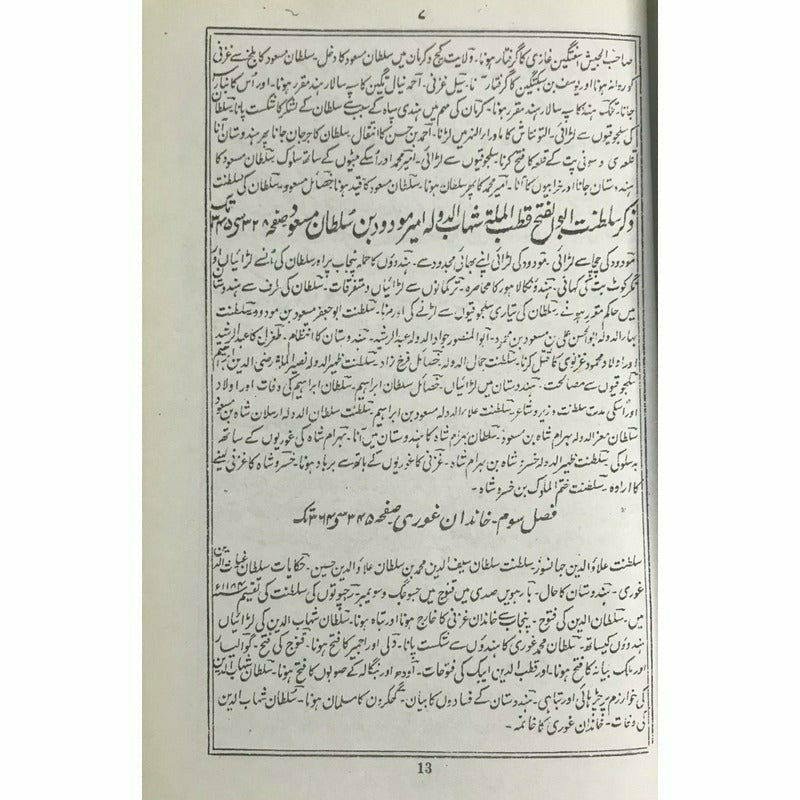 ۷
صاحب الجیش اسفتگین غازی کا گرفتار ہونا۔ ولایت کیچ و کرمان میں سلطان مسعود کا دخل۔ سلطان مسعود کا بلخ سے غزنی
کو روانہ ہونا اور یوسف بن سبکتگین کا گرفتار ہونا۔ سیل غزنی۔ احمد نیال تگین کا سپہ سالار ہند مقرر ہونا۔ اور اُس کا بنارس
جانا۔ تلک ہند کا سپہ سالار ہند مقرر ہونا۔ کرمان کی مہم میں ہندی سپاہ کے سبب سے سلطان کے لشکر کا شکست پانا۔ سلطان
کی سلجوقیوں سے لڑائی۔ التونتاش کا ماوراء النہر میں لڑنا۔ احمد بن حسن کا انتقال۔ سلطان کا جرجان جانا پھر ہندوستان آنا
قلعوری و سونی پت کے قلعہ کا فتح کرنا۔ سلجوقیوں سے لڑائی۔ امیر محمد اور اُسکے بیٹوں کے ساتھ سلوک۔ سلطان مسعود کا
ہندوستان جانا اور خرابیوں کا آنا۔ امیر محمد کا پھر سلطان ہونا۔ سلطان مسعود کا قید ہونا۔ خصائل مسعود۔ سلطان کی سلطنت
ذکر سلطنت ابوالفتح قطب الملۃ شہاب الدولہ امیر مودود بن سلطان مسعود صفحہ ۳۲۸ سے ۳۴۵ تک
مودود کی چچا سے لڑائی۔ مودود کی لڑائی اپنے بھائی مجدود سے۔ ہندوؤں کا حملہ پنجاب پر اور سلطان کی اُنسے لڑائیاں اور
نگر کوٹ بت کی کہانی۔ ہندوؤں کا لاہور کا محاصرہ۔ ترکمانوں سے لڑائیاں و متفرقات۔ سلطان کی طرف سے ہندوستان
میں حاکم مقرر ہونے۔ سلطان کی تیاری سلجوقیوں سے لڑنے کی اور مرنا۔ سلطنت ابو جعفر مسعود بن مودود۔ سلطنت
بہاء الدولہ ابو الحسن علی بن مسعود بن محمود۔ ابو المنصور جواد الدولہ عبد الرشید۔ ہندوستان کا انتظام۔ طغرل کا عبد الرشید
اور اولاد محمود غزنوی کا قتل کرنا۔ سلطنت جمال الدولہ۔ خصائل فرخ زاد۔ سلطنت ظہیر الدولہ نصیر الملۃ رضی الدین ابراہیم
سلجوقیوں سے مصالحت۔ ہندوستان میں لڑائیاں۔ خصائل سلطان ابراہیم۔ سلطان ابراہیم کی وفات اور اولاد
اور اُسکی مدت سلطنت و زیر و شاعر۔ سلطنت علاء الدولہ مسعود بن ابراہیم۔ سلطنت سلطان الدولہ ارسلان شاہ بن مسعود
سلطان معز الدولہ بہرام شاہ بن مسعود۔ سلطان بہرام شاہ کا ہندوستان میں آنا۔ بہرام شاہ کی غوریوں کے ساتھ
بدسلوکی۔ سلطنت ظہیر الدولہ خسرو شاہ بن بہرام شاہ۔ غزنی کا غوریوں کے ہاتھ سے برباد ہونا۔ خسرو شاہ کا غزنی لینے
کا ارادہ۔ سلطنت ختم الملوک بن خسرو شاہ۔
فصل سوم۔ خاندان غوری۔ صفحہ ۳۴۵ سے ۳۶۴ تک
سلطنت علاؤ الدین جہانسوز۔ سلطنت سلطان سیف الدین محمد بن سلطان علاؤ الدین حسین۔ حکایات سلطان غیاث الدین
غوری۔ ہندوستان کا حال۔ بارہویں صدی میں قنوج میں جیوجگ و سویمبر۔ رجپوتوں کی سلطنت کی تقسیم ۱۱۸۴ء
میں۔ سلطان الدین کی فتوح۔ پنجاب سے خاندان غزنی کا خارج ہونا اور تباہ ہونا۔ سلطان شہاب الدین کی لڑائیاں
ہندوؤں کیساتھ۔ سلطان محمد غوری کا ہندوؤں سے شکست پانا۔ دلی اور اجمیر کا فتح ہونا۔ قنوج کی فتح۔ گوالیار
اور ملک بیانہ کا فتح ہونا۔ اور قطب الدین ایبک کی فتوحات۔ اودھ اور بنگالہ کے صوبوں کا فتح ہونا۔ سلطان شہاب الدین
کی خوارزم پر چڑھائی اور تباہی۔ ہندوستان کے فسادوں کا بیان۔ گھکروں کا مسلمان ہونا۔ سلطان شہاب الدین
کی وفات۔ خاندان غوری کا خاتمہ۔
13